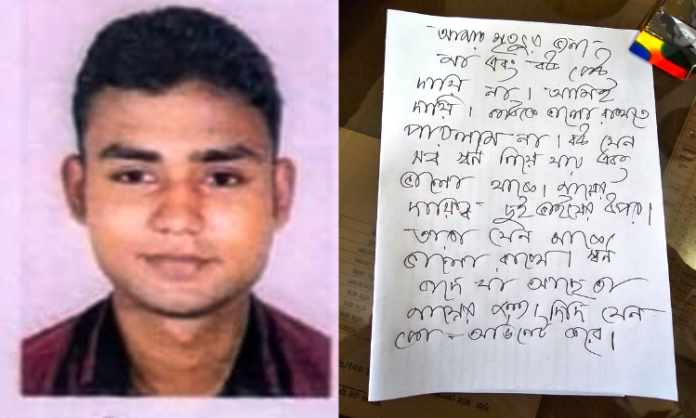 -আমার মৃত্যুর জন্য-
মা এবং বউ কেউ
দায়ি না। আমিই
দায়ি। কাউকে ভালো রাখতে
পারলাম না। বউ যেন
সব স্বর্ন নিয়ে যায় এবং
ভালো থাকে। মায়ের
দায়িত্ব দুই ভাইয়ের উপর।
তারা যেন মাকে
ভালো রাখে। স্বর্ন
বাদে যা আছে তা
মায়ের জন্য। দিদি যেন
কো-অর্ডিনেট করে।